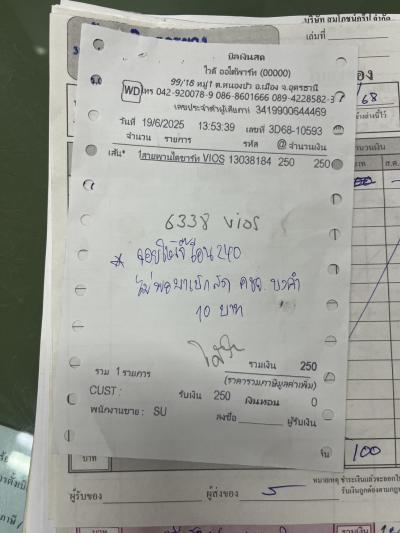 บริษัท สมโภชน์กรุ๊ป จำกัด
เล่มที่
บิลเงินสด
ไวดี ออโต้พาร์ท (00000)
99/18 หมู่1 ต.หนองบัว อ.เมือง จ.อุดรธานี
WD
โทร 042-920078-9 086-8601666 089-4228582-3
เลขประจำตัวผู้เสียภาษี 3419900644469
วันที่ 19/6/2025 13:53:39 เลขที่ 3D68-10593
จำนวน รายการ รหัส @ จำนวนเงิน
เส้น* 1สายพานไดชาร์ท VIOS 13038184 250 250
68
6338 vios
* จอยให้เงินโอน 240
ไม่พอมาเบิกสด
10 บาท
รวม 1 รายการ
รวมเงิน 250
(ราคารวมภาษีมูลค่าเพิ่ม)
CUST :
รับเงิน 250 เงินทอน 0
พนักงานขาย : SU
ลงชื่อ ผู้รับเงิน
บาท
100
ผู้รับของ
ผู้ส่งของ
รวมเงิน